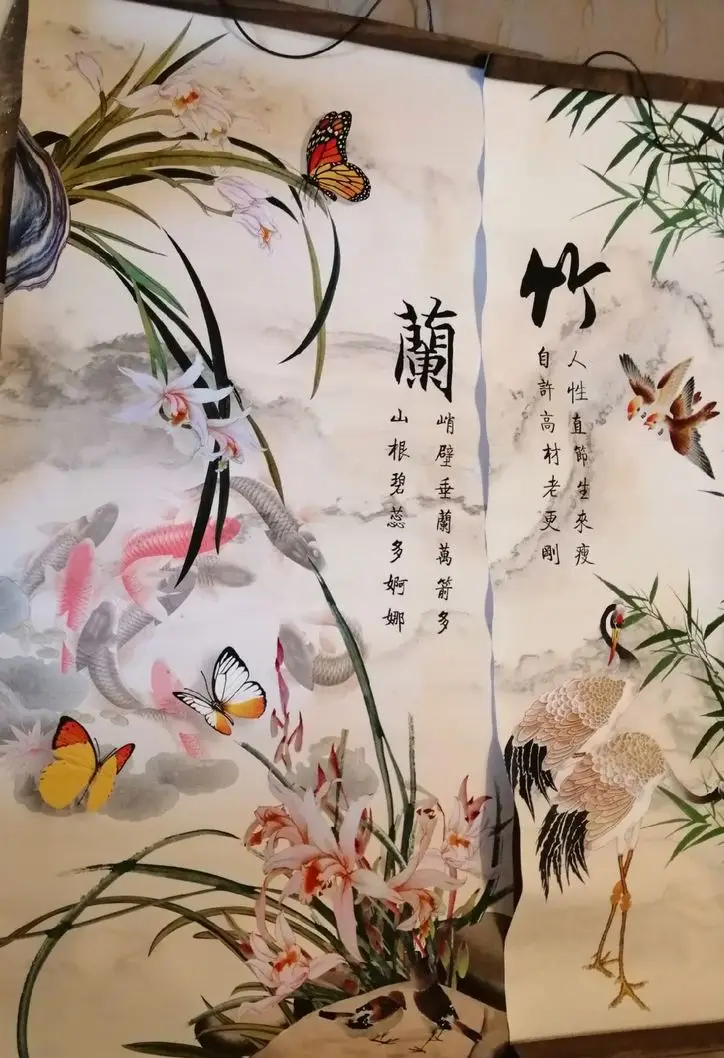 竹
人性直節生來瘦
自許高材老更剛
蘭
峭壁垂蘭萬箭多
山根碧蕊多婀娜